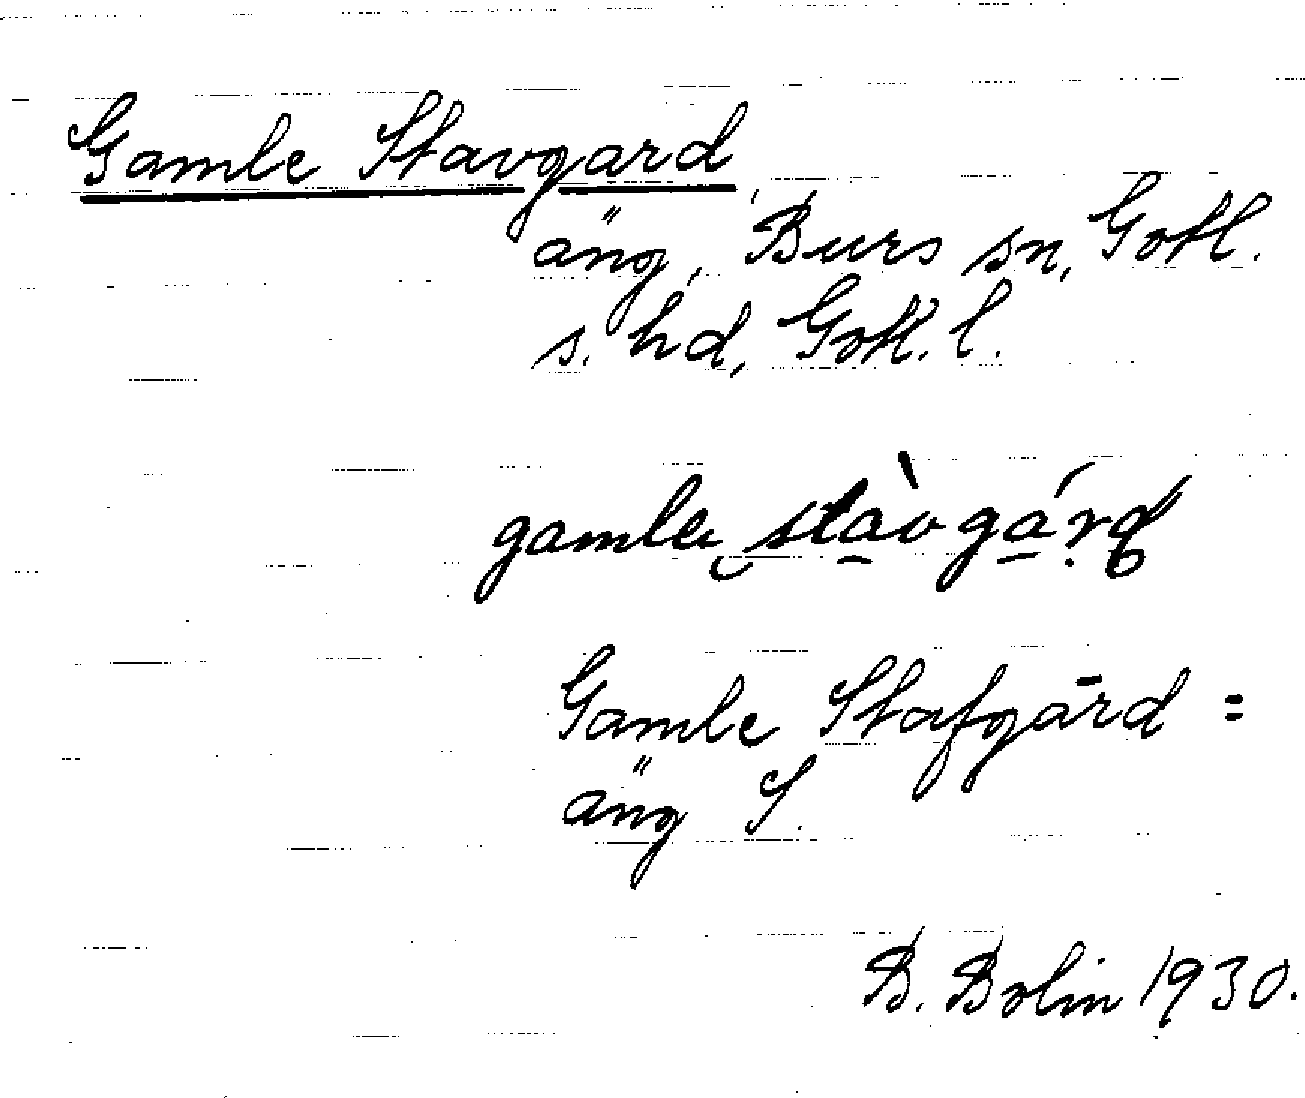 Gamle Stavgard
äng, Burs sn, Gotl.
s. hd, Gotl. l.
gamlɐ stàvgárd
Gamle Stafgārd =
äng S.
B. Bolin 1930.